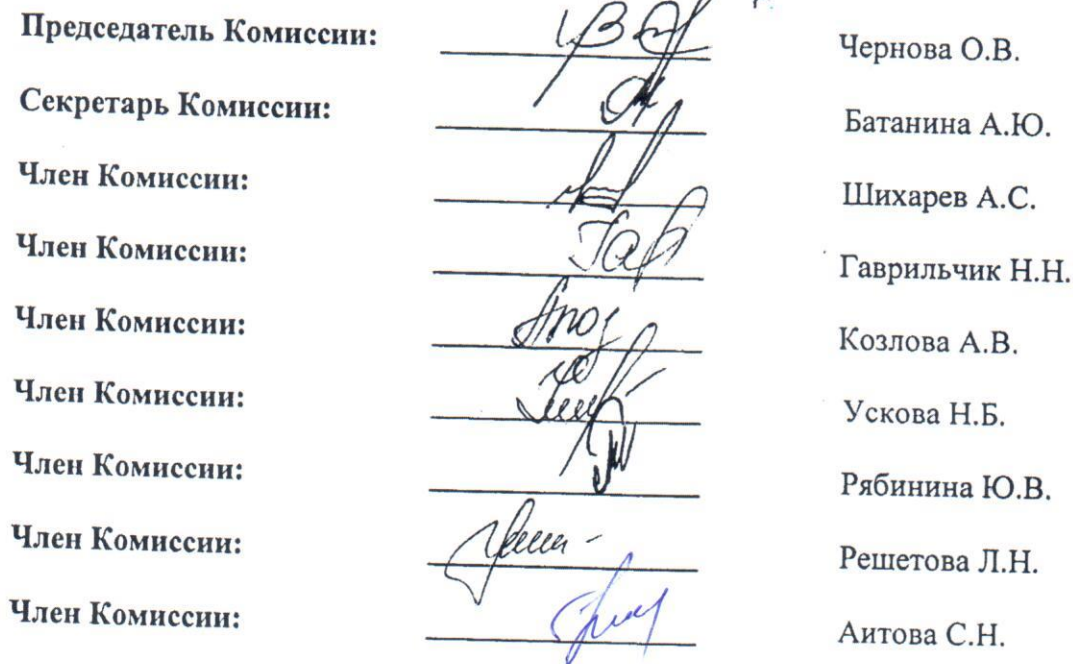 Председатель Комиссии: Чернова О.В.
Секретарь Комиссии: Батанина А.Ю.
Член Комиссии: Шихарев А.С.
Член Комиссии: Гаврильчик Н.Н.
Член Комиссии: Козлова А.В.
Член Комиссии: Ускова Н.Б.
Член Комиссии: Рябинина Ю.В.
Член Комиссии: Решетова Л.Н.
Член Комиссии: Аитова С.Н.